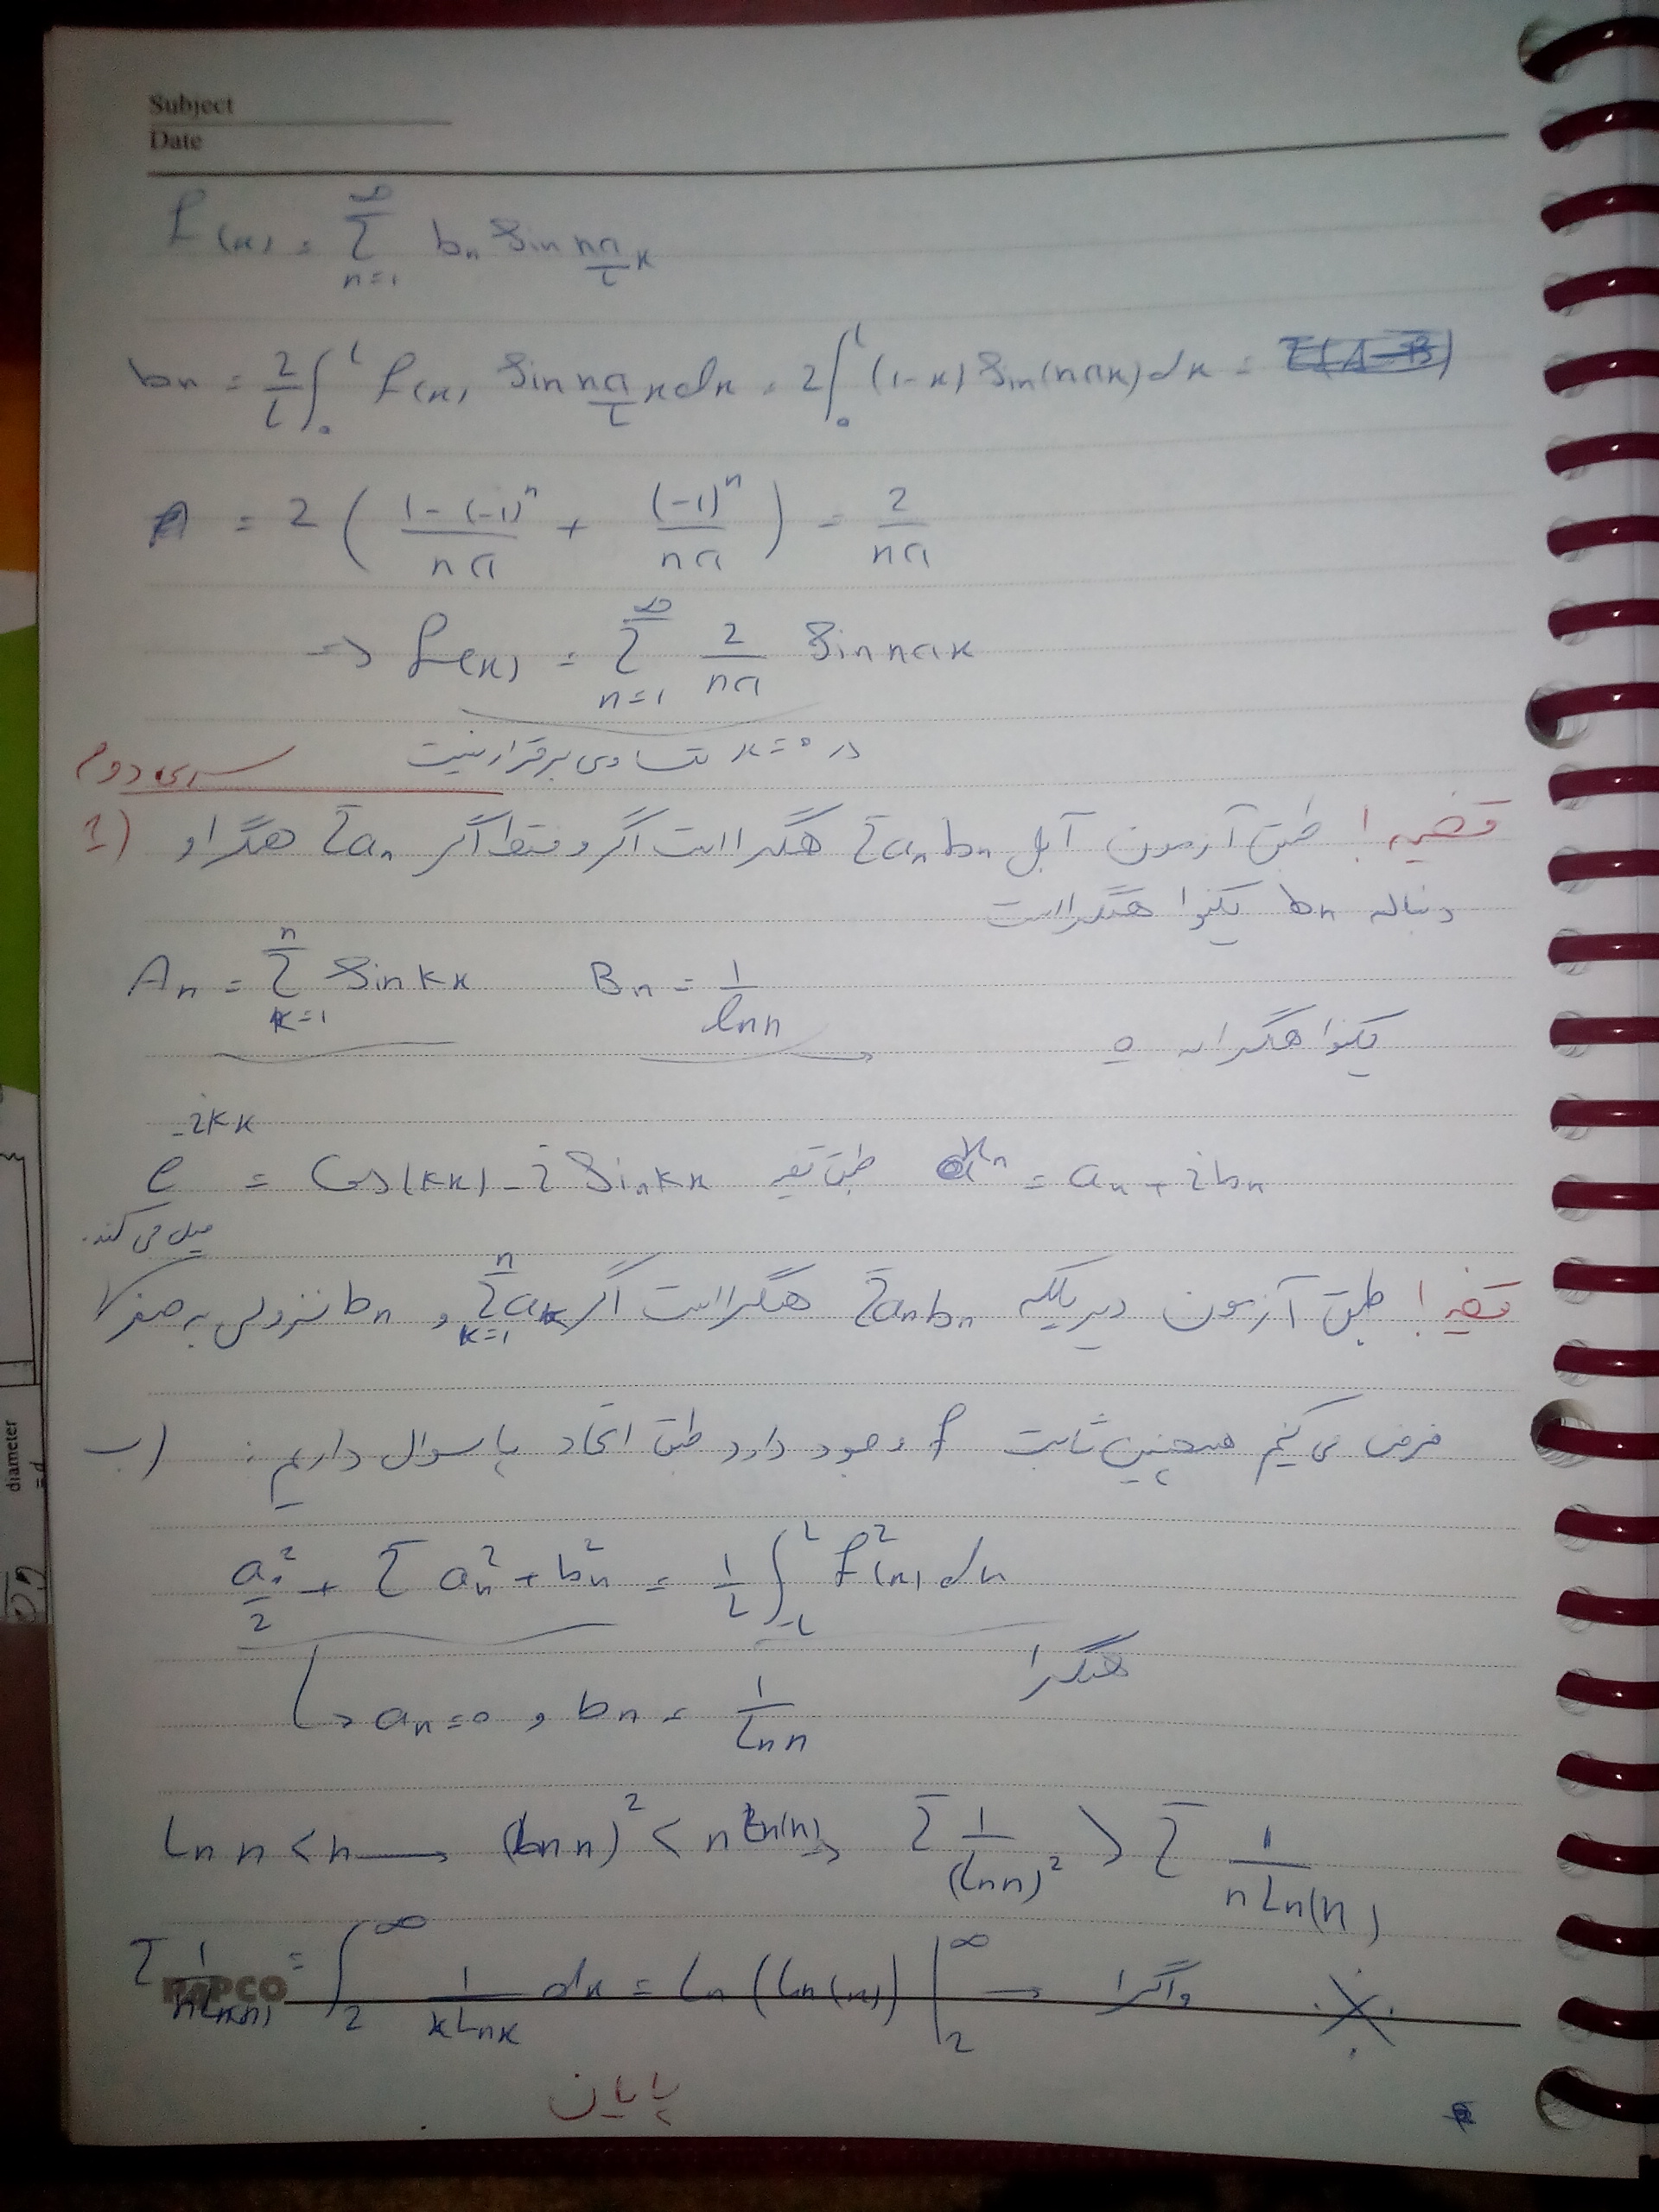 Subject
Date
f(x) = Σ_{n=1}^{∞} bn Sin nπ/L x
bn = 2/L ∫_0^L f(x) Sin nπ/L x dx = 2 ∫_0^1 (1-x) Sin(nπx) dx =
= 2 ( (1-(-1)^n)/nπ + (-1)^n/nπ ) = 2/nπ
⇒ f(x) = Σ_{n=1}^{∞} 2/nπ Sin nπx
در x=0 تساوی برقرار نیست
سری دوم
1) قضیه! طبق آزمون آبل Σ an bn همگرا است اگر و فقط اگر Σ an همگرا و
دنباله bn یکنوا همگرا است
An = Σ_{k=1}^{n} Sin kx Bn = 1/ln n
یکنوا همگرا به 0
e^{-ikx} = Cos(kx) - i Sin kx طبق قضیه αn = an + ibn
قضیه! طبق آزمون دیریکله Σ an bn همگرا است اگر Σ_{k=1}^{n} ak و bn نزولی به صفر
میل می کند.
ب) فرض می کنیم همچنین ثابت f وجود دارد طبق اتحاد پارسوال داریم:
a0²/2 + Σ an² + bn² = 1/L ∫_{-L}^{L} f²(x) dx
همگرا
↳ an = 0 , bn = 1/Ln n
Ln n < n → (Ln n)² < n Ln(n) ⇒ Σ 1/(Ln n)² > Σ 1/(n Ln(n))
Σ 1/(n Ln(n)) = ∫_2^∞ 1/(x Ln x) dx = Ln(Ln(x)) |_2^∞ → واگرا
PAPCO
پایان